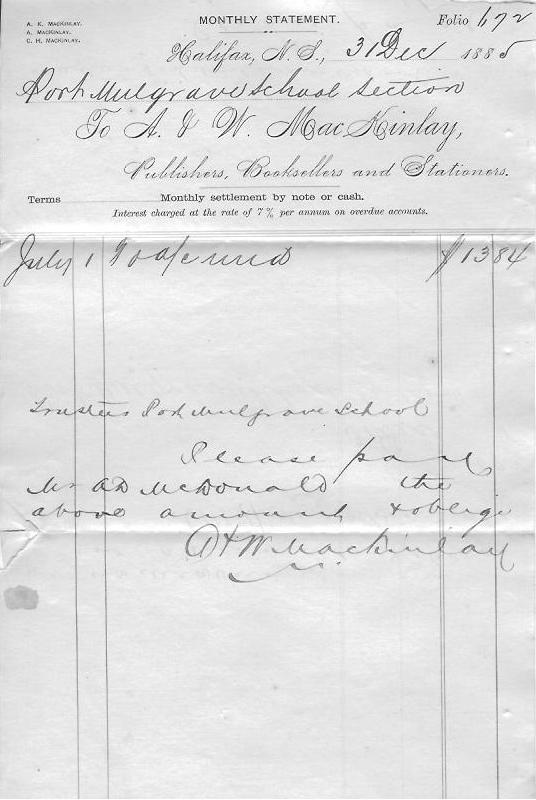 A. K. MACKINLAY.
A. MACKINLAY.
C. H. MACKINLAY.
MONTHLY STATEMENT.
Folio 672
Halifax, N. S., 31 Dec 1885
Port Mulgrave School Section
To A. & W. MacKinlay,
Publishers, Booksellers and Stationers.
Terms Monthly settlement by note or cash.
Interest charged at the rate of 7% per annum on overdue accounts.
July 1 To a/c $13 84
Trustees Port Mulgrave School
Please pay
Mr AD McDonald the
above amount & oblige
A & W MacKinlay